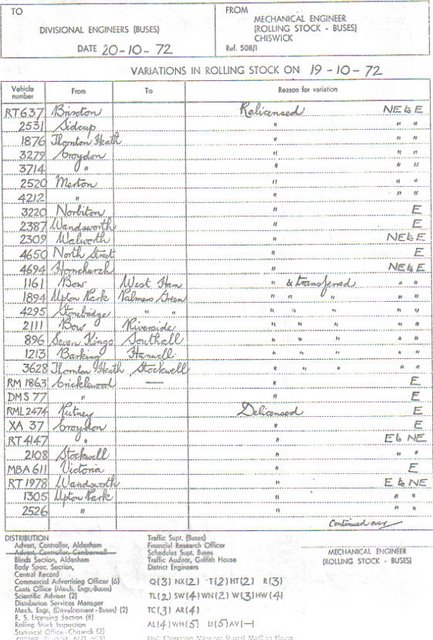 TO
FROM
DIVISIONAL ENGINEERS (BUSES)
MECHANICAL ENGINEER
(ROLLING STOCK - BUSES)
CHISWICK
DATE 20-10-72
Ref. 508/1
VARIATIONS IN ROLLING STOCK ON 19-10-72
Vehicle number From To Reason for variation
RT 637 Brixton Relicensed NE to E
2531 Sidcup " " "
1876 Thornton Heath " " "
3279 Croydon " " "
3714 " " " "
2520 Merton " " "
4212 " " " "
3220 Norbiton " E
2387 Wandsworth " E
2309 Walworth " NE to E
4650 North Street " E
4694 Hornchurch " NE to E
1161 Bow West Ham " & transferred " "
1894 Upton Park Palmers Green " " " " "
4295 Stonebridge " " " " " " "
2111 Bow Riverside " " " " "
896 Seven Kings Southall " " " " "
1213 Barking Hanwell " " " " "
3628 Thornton Heath Stockwell " " " " "
RM 1863 Cricklewood — " E
DMS 77 " " E
RML 2474 Putney Delicensed E
XA 37 Croydon " E
RT 4147 " " E to NE
2108 Stockwell " " "
MBA 611 Victoria " E
RT 1978 Wandsworth " E to NE
1305 Upton Park " " "
2526 " " " "
Continued
DISTRIBUTION
Advert. Controller, Aldenham
Advert. Controller, Camberwell
Blinds Section, Aldenham
Body Spec. Section,
Central Record
Commercial Advertising Officer (6)
Costs Office (Mech. Engr-Buses)
Scientific Adviser (2)
Distribution Services Manager
Mech. Engr. (Development - Buses) (2)
R. S. Licensing Section (8)
Rolling Stock Inspection
Statistical Office - Chiswick (2)
Traffic Supt. (Buses)
Financial Research Officer
Schedules Supt. Buses
Traffic Auditor, Griffith House
District Engineers
Q(3) NX(2) T(2) HT(2) R(3)
TL(2) SW(4) WN(2) W(3) HW(4)
TC(3) AR(4)
AL(4) WH(5) U(5) AV(—)
MECHANICAL ENGINEER
(ROLLING STOCK - BUSES)